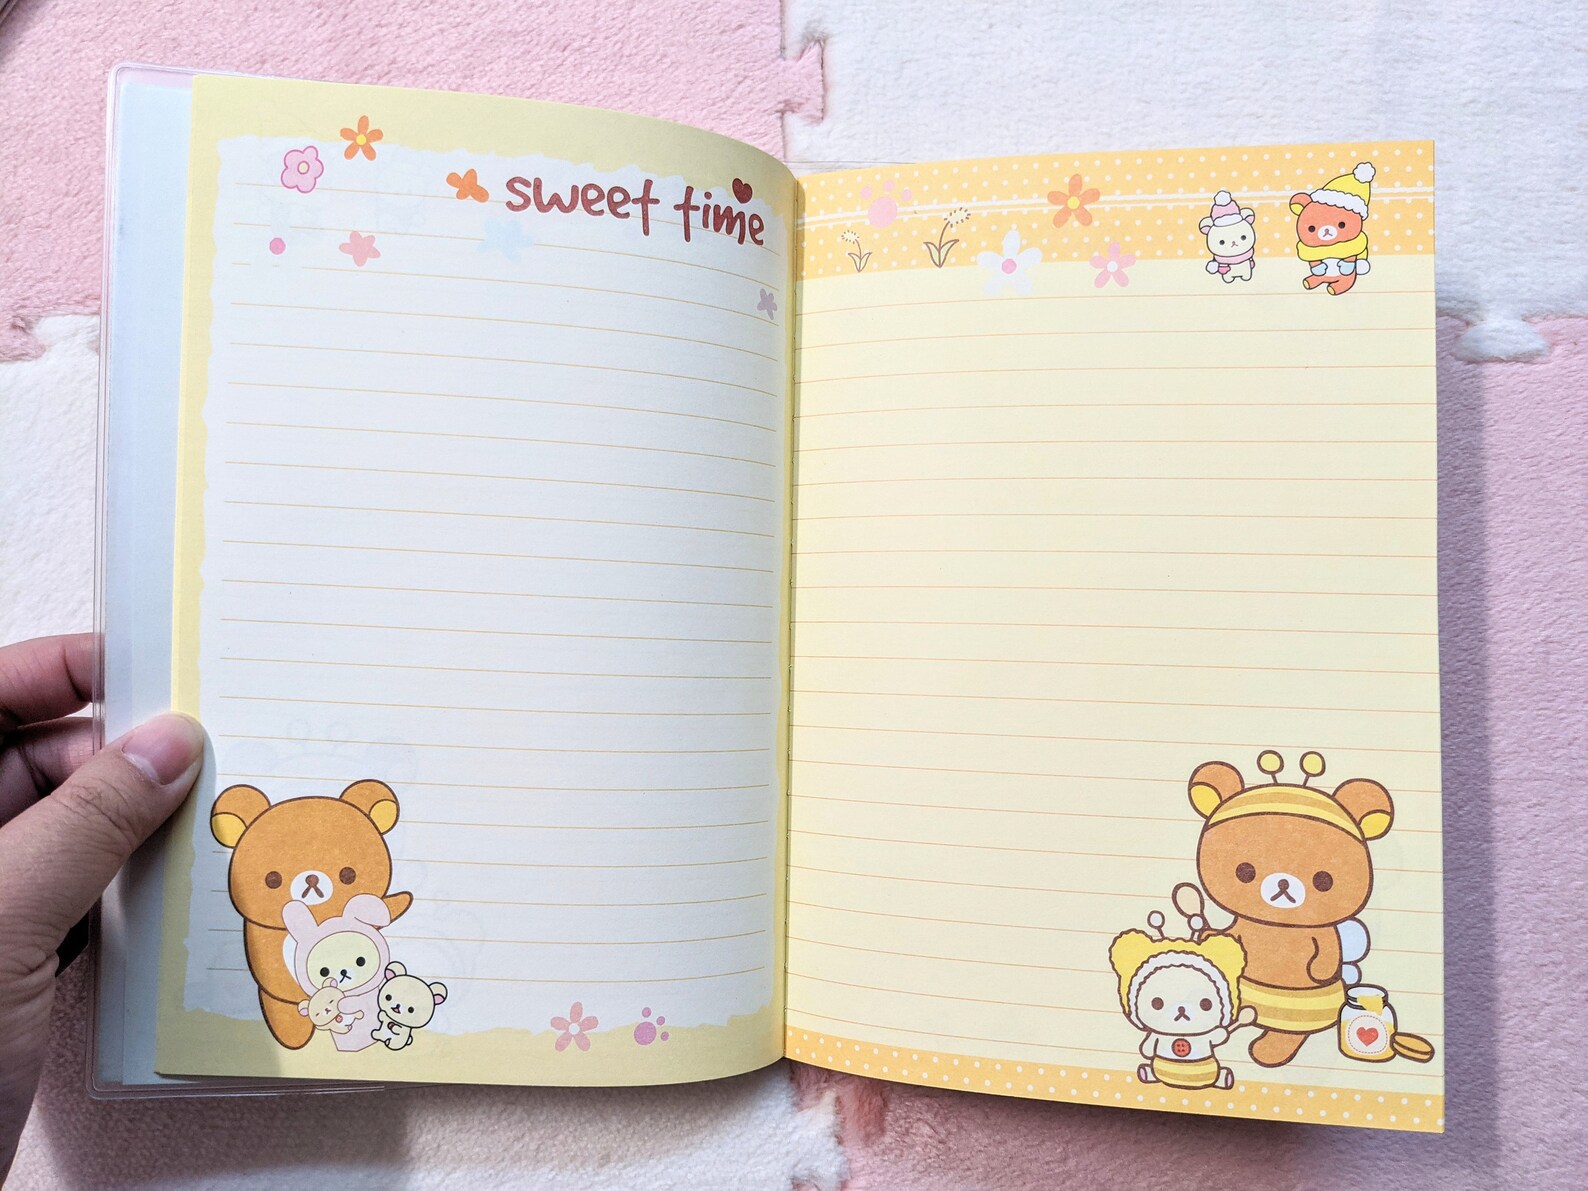 sweet time